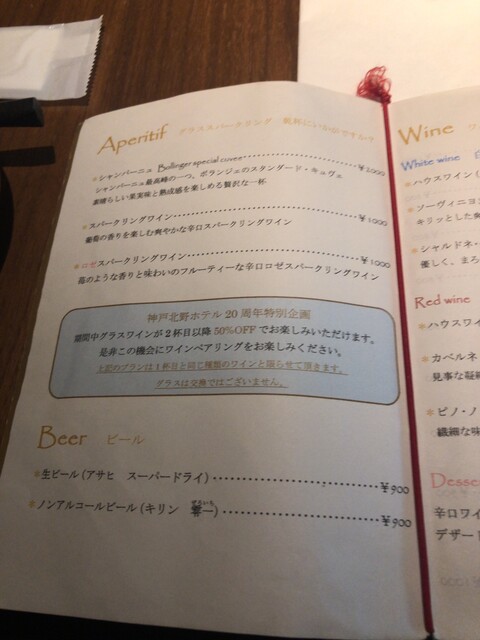 Aperitif グラススパークリング 乾杯にいかがですか?
*シャンパーニュ Bollinger special cuvee ¥2000
シャンパーニュ最高峰の一つ。ボランジェのスタンダード・キュヴェ
素晴らしい果実味と熟成感を楽しめる贅沢な一杯
*スパークリングワイン ¥1000
葡萄の香りを楽しむ爽やかな辛口スパークリングワイン
*ロゼスパークリングワイン ¥1000
苺のような香りと味わいのフルーティーな辛口ロゼスパークリングワイン
神戸北野ホテル20周年特別企画
期間中グラスワインが2杯目以降50%OFFでお楽しみいただけます。
是非この機会にワインペアリングをお楽しみください。
上記のプランは1杯目と同じ種類のワインと限らせて頂きます。
グラスは交換ではございません。
Beer ビール
*生ビール(アサヒ スーパードライ) ¥900
*ノンアルコールビール(キリン 零一) ¥900
Wine
White wine
*ハウスワイン(
*ソーヴィニヨ
キリッとした爽
*シャルドネ・
優しく、まろ
Red wine
*ハウスワイ
*カベルネ
見事な凝縮
*ピノ・ノ
繊細な味
Desse
辛口ワイ
デザー